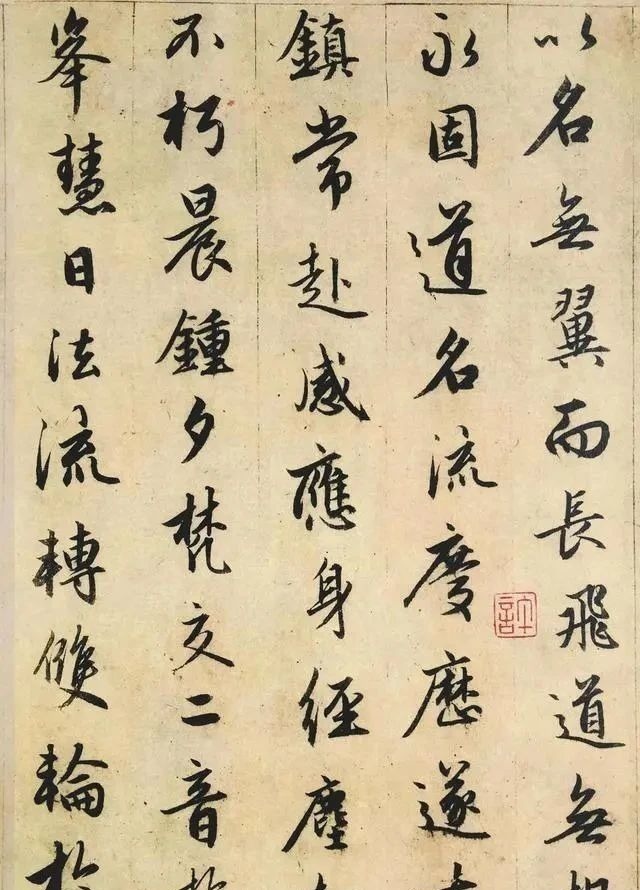 以名無翼而長飛道無
永固道名流慶歷遂
鎮常赴感應身經塵
不朽晨鍾夕梵交二音
峯慧日法流轉雙輪於
許